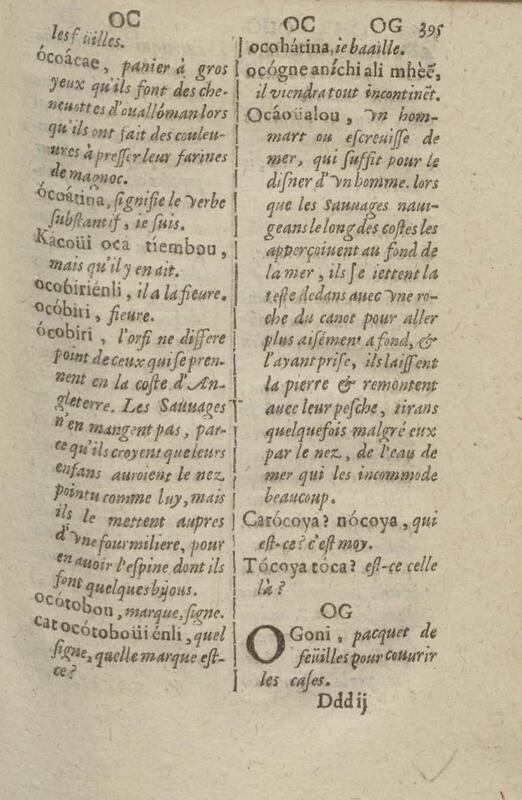 OC
lesfüilles.
ócoácae, panier à gros
yeux qu'ils font des che-
neuottes d'ouallóman lors
qu'ils ont fait des couleu-
ures à presser leur farines
de magnoc.
ócoátina, signifie le verbe
substantif, ie suis.
Kácoüi ocá tiembou,
mais qu'il y en ait.
ocobiriénli, il a la fieure.
ocóbiri, fieure.
ócobiri, l'orfi ne differe
point de ceux qui se pren-
nent en la coste d'An-
gleterre. Les Sauuages
n'en mangent pas, par-
ce qu'ils croyent que leurs
enfans auroient le nez
pointu comme luy, mais
ils le mettent aupres
d'vne fourmiliere, pour
en auoir l'espine dont ils
font quelques bijous.
ocótobou, marque, signe.
catocótoboüi énli, quel
signe, quelle marque est-
ce?
OC OG 395
ocohátina, ie baaille.
ocógne aníchi ali mhèé,
il viendra tout incontinẽt.
Ocáoüalou, vn hom-
mart ou escreuisse de
mer, qui suffit pour le
disner d'vn homme. lors
que les Sauuages naui-
geans le long des costes les
apperçoiuent au fond de
la mer, ils se iettent la
teste dedans auec vne ro-
che du canot pour aller
plus aisément a fond, &
l'ayant prise, ils laissent
la pierre & remontent
auec leur pesche, tirans
quelquefois malgré eux
par le nez, de l'eau de
mer qui les incommode
beaucoup.
Catócoya? nócoya, qui
est-ce? c'est moy.
Tócoya tóca? est-ce celle
là?
OG
OGoni, pacquet de
feüilles pour couurir
les cases.
Dddij